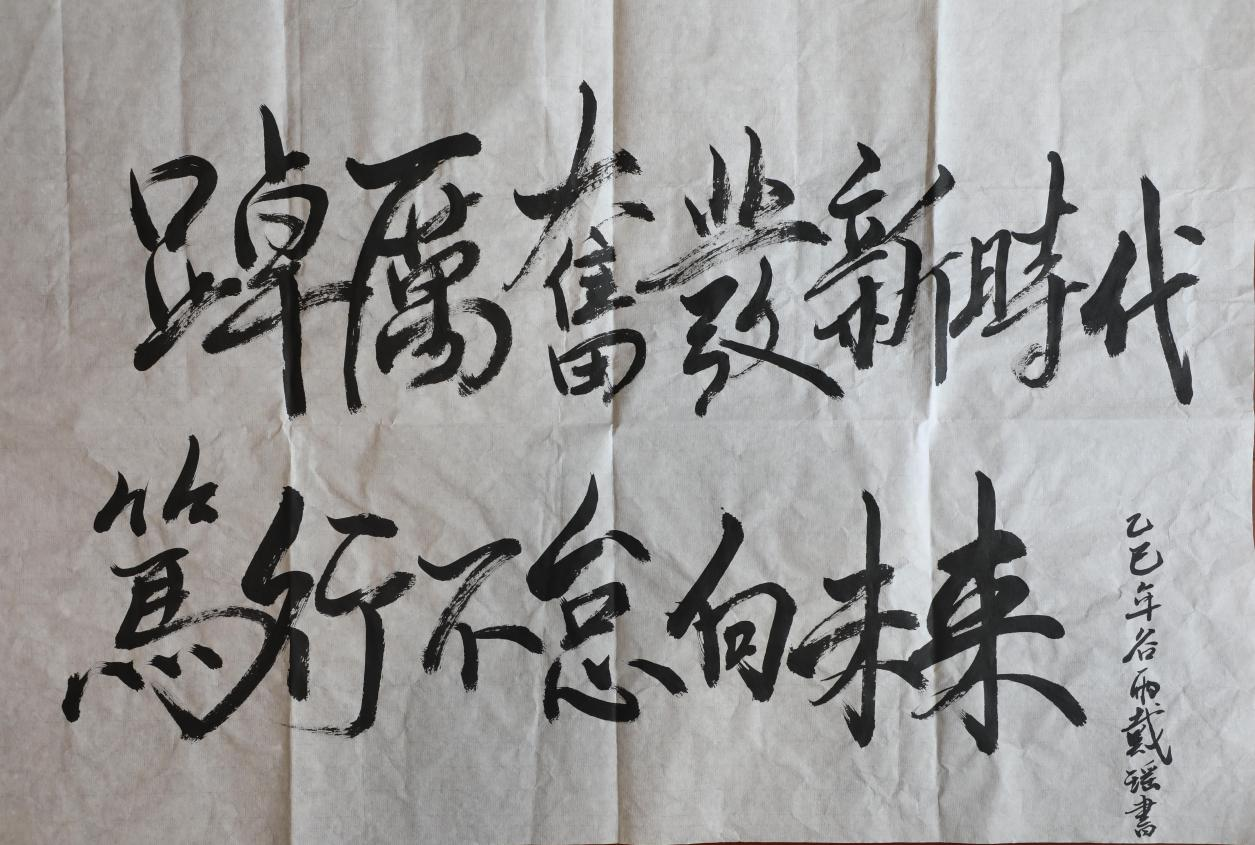 踔厲奮發新時代
篤行不怠向未来
乙巳年谷雨戴瑶書